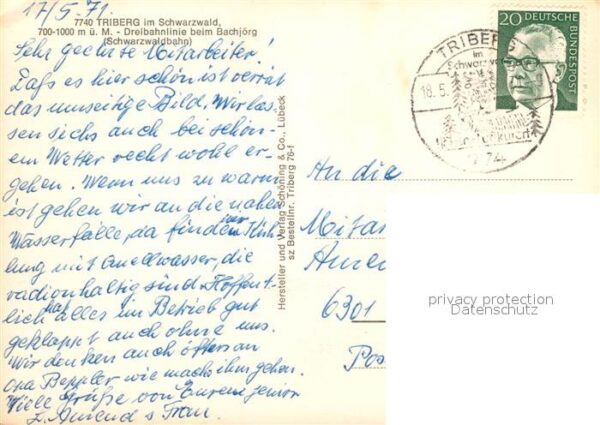 17/5. 71.
7740 TRIBERG im Schwarzwald,
700-1000 m ü. M. - Dreibahnlinie beim Bachjörg
(Schwarzwaldbahn)
Sehr geehrte Mitarbeiter!
Daß es hier schön ist verrät
das umseitige Bild. Wir las-
sen sichs auch bei schön-
em Wetter recht wohl er-
gehen. Wenn uns zu warm
ist gehen wir an die nahen
Wasserfälle, da finden wir Küh-
lung mit Quellwasser, die
radionhaltig sind. Hoffent-
lich hat alles im Betrieb gut
geklappt auch ohne uns.
Wir denken auch öfters an
Opa Beppler wie machs ihm gehen.
Viele Grüße von Eurem senior
L. Amend & Frau.
Hersteller und Verlag Schöning & Co., Lübeck
sz Bestellnr. Triberg 76-f
20 DEUTSCHE
BUNDESPOST
TRIBERG
im
18.5.
An die
Mitar
6301
Pos
privacy protection
Datenschutz